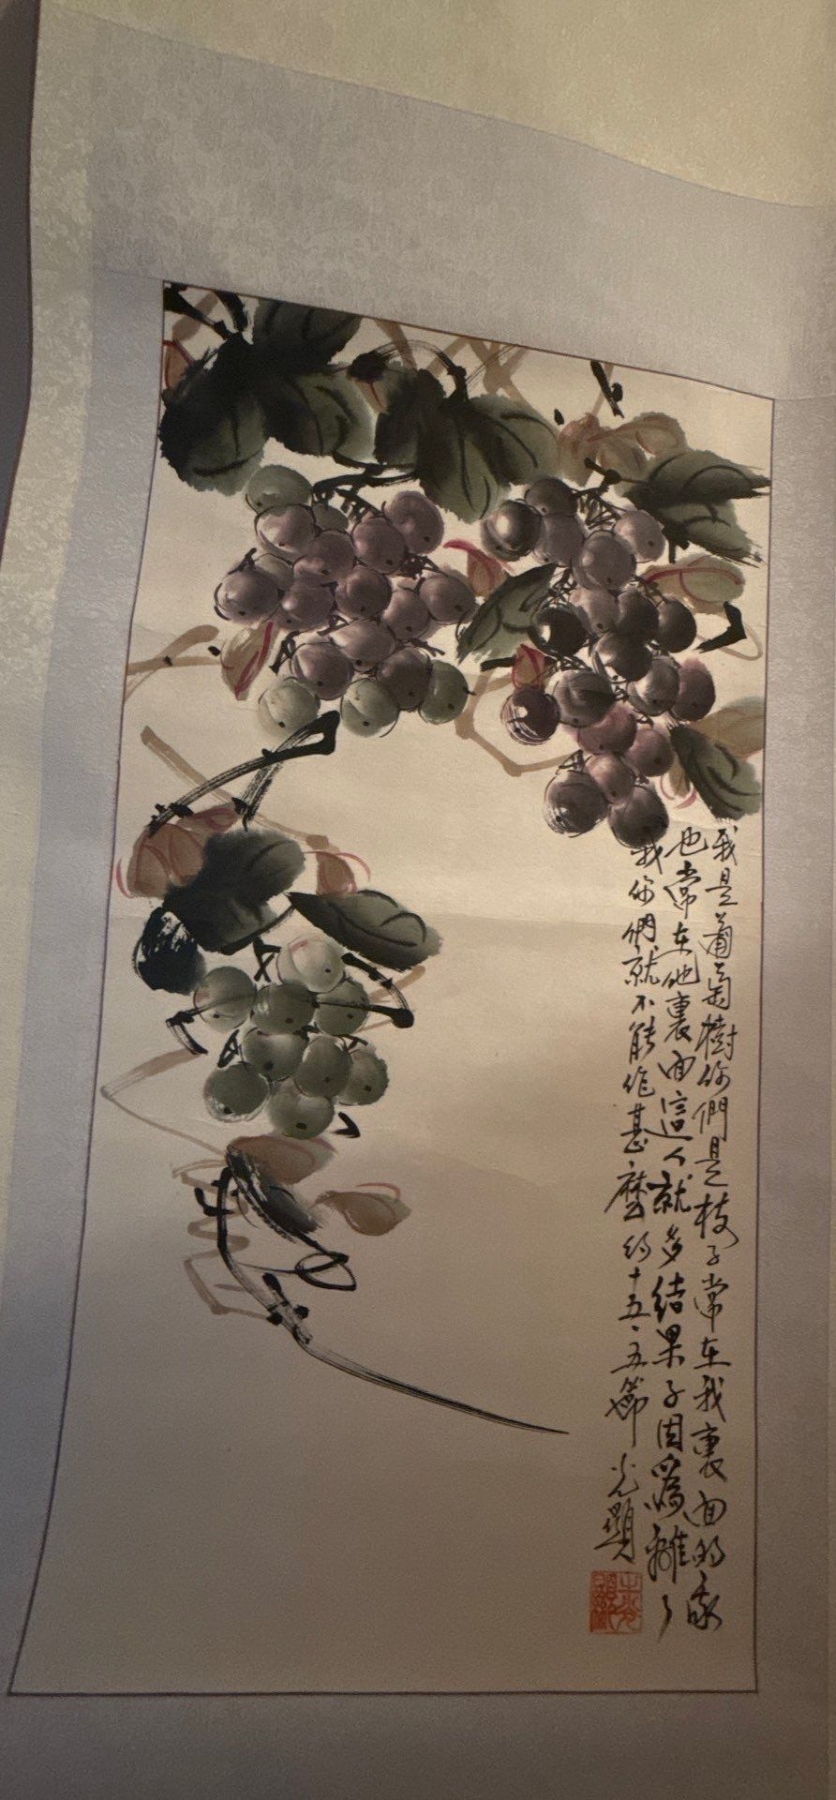 我是葡萄樹你們是枝子常在我裏面的我
也常在他裏面這人就多結果子因爲離了
我你們就不能作甚麼約十五·五節 光